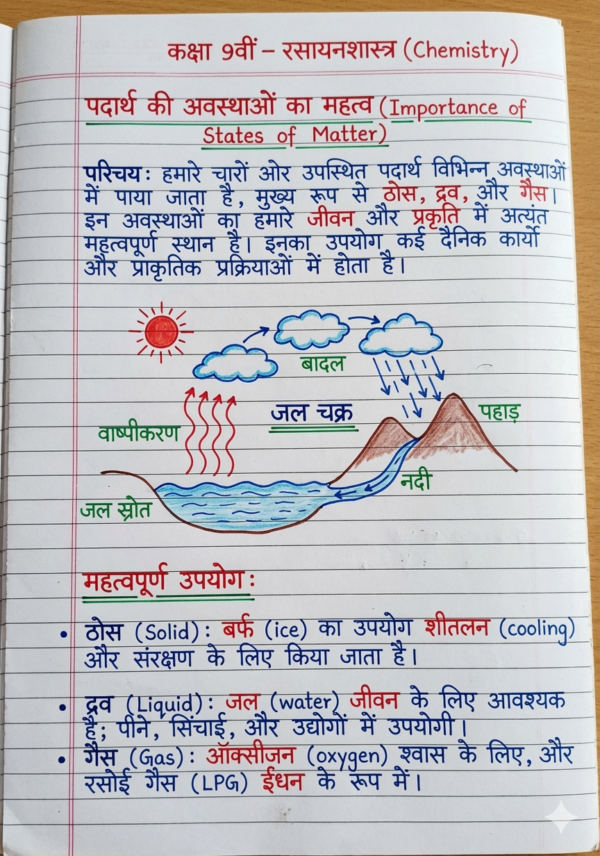 कक्षा 9वीं – रसायनशास्त्र (Chemistry)
पदार्थ की अवस्थाओं का महत्व (Importance of
States of Matter)
परिचय: हमारे चारों ओर उपस्थित पदार्थ विभिन्न अवस्थाओं
में पाया जाता है, मुख्य रूप से ठोस, द्रव, और गैस।
इन अवस्थाओं का हमारे जीवन और प्रकृति में अत्यंत
महत्वपूर्ण स्थान है। इनका उपयोग कई दैनिक कार्यों
और प्राकृतिक प्रक्रियाओं में होता है।
बादल
जल चक्र
पहाड़
वाष्पीकरण
नदी
जल स्रोत
महत्वपूर्ण उपयोग:
• ठोस (Solid): बर्फ (ice) का उपयोग शीतलन (cooling)
और संरक्षण के लिए किया जाता है।
• द्रव (Liquid): जल (water) जीवन के लिए आवश्यक
है; पीने, सिंचाई, और उद्योगों में उपयोगी।
• गैस (Gas): ऑक्सीजन (oxygen) श्वास के लिए, और
रसोई गैस (LPG) ईंधन के रूप में।